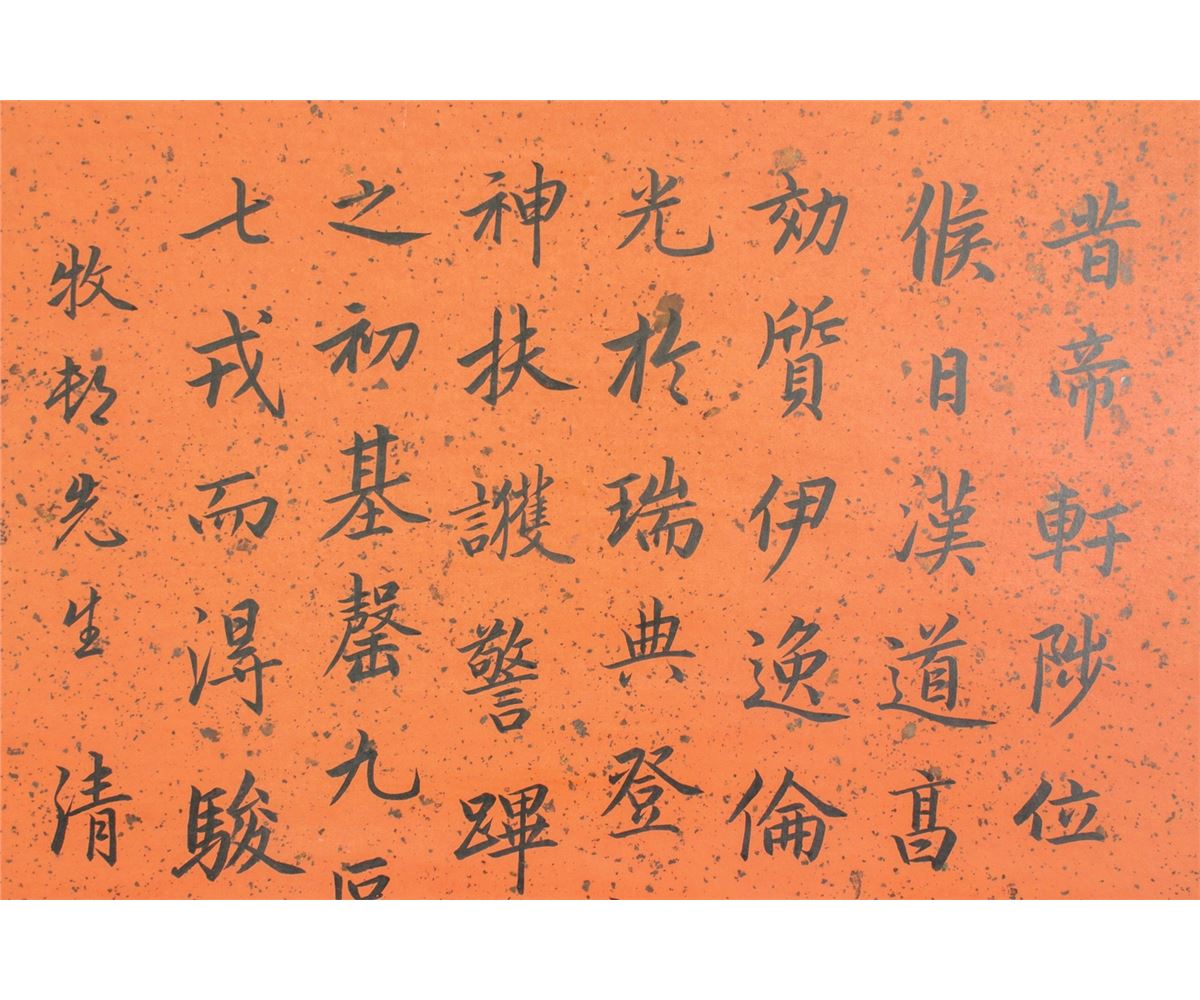 昔帝軒陟位
候日漢道髙
効質伊逸倫
光於瑞典登
神扶護警蹕
之初基罄九
七戎而淂駿
牧邨先生清